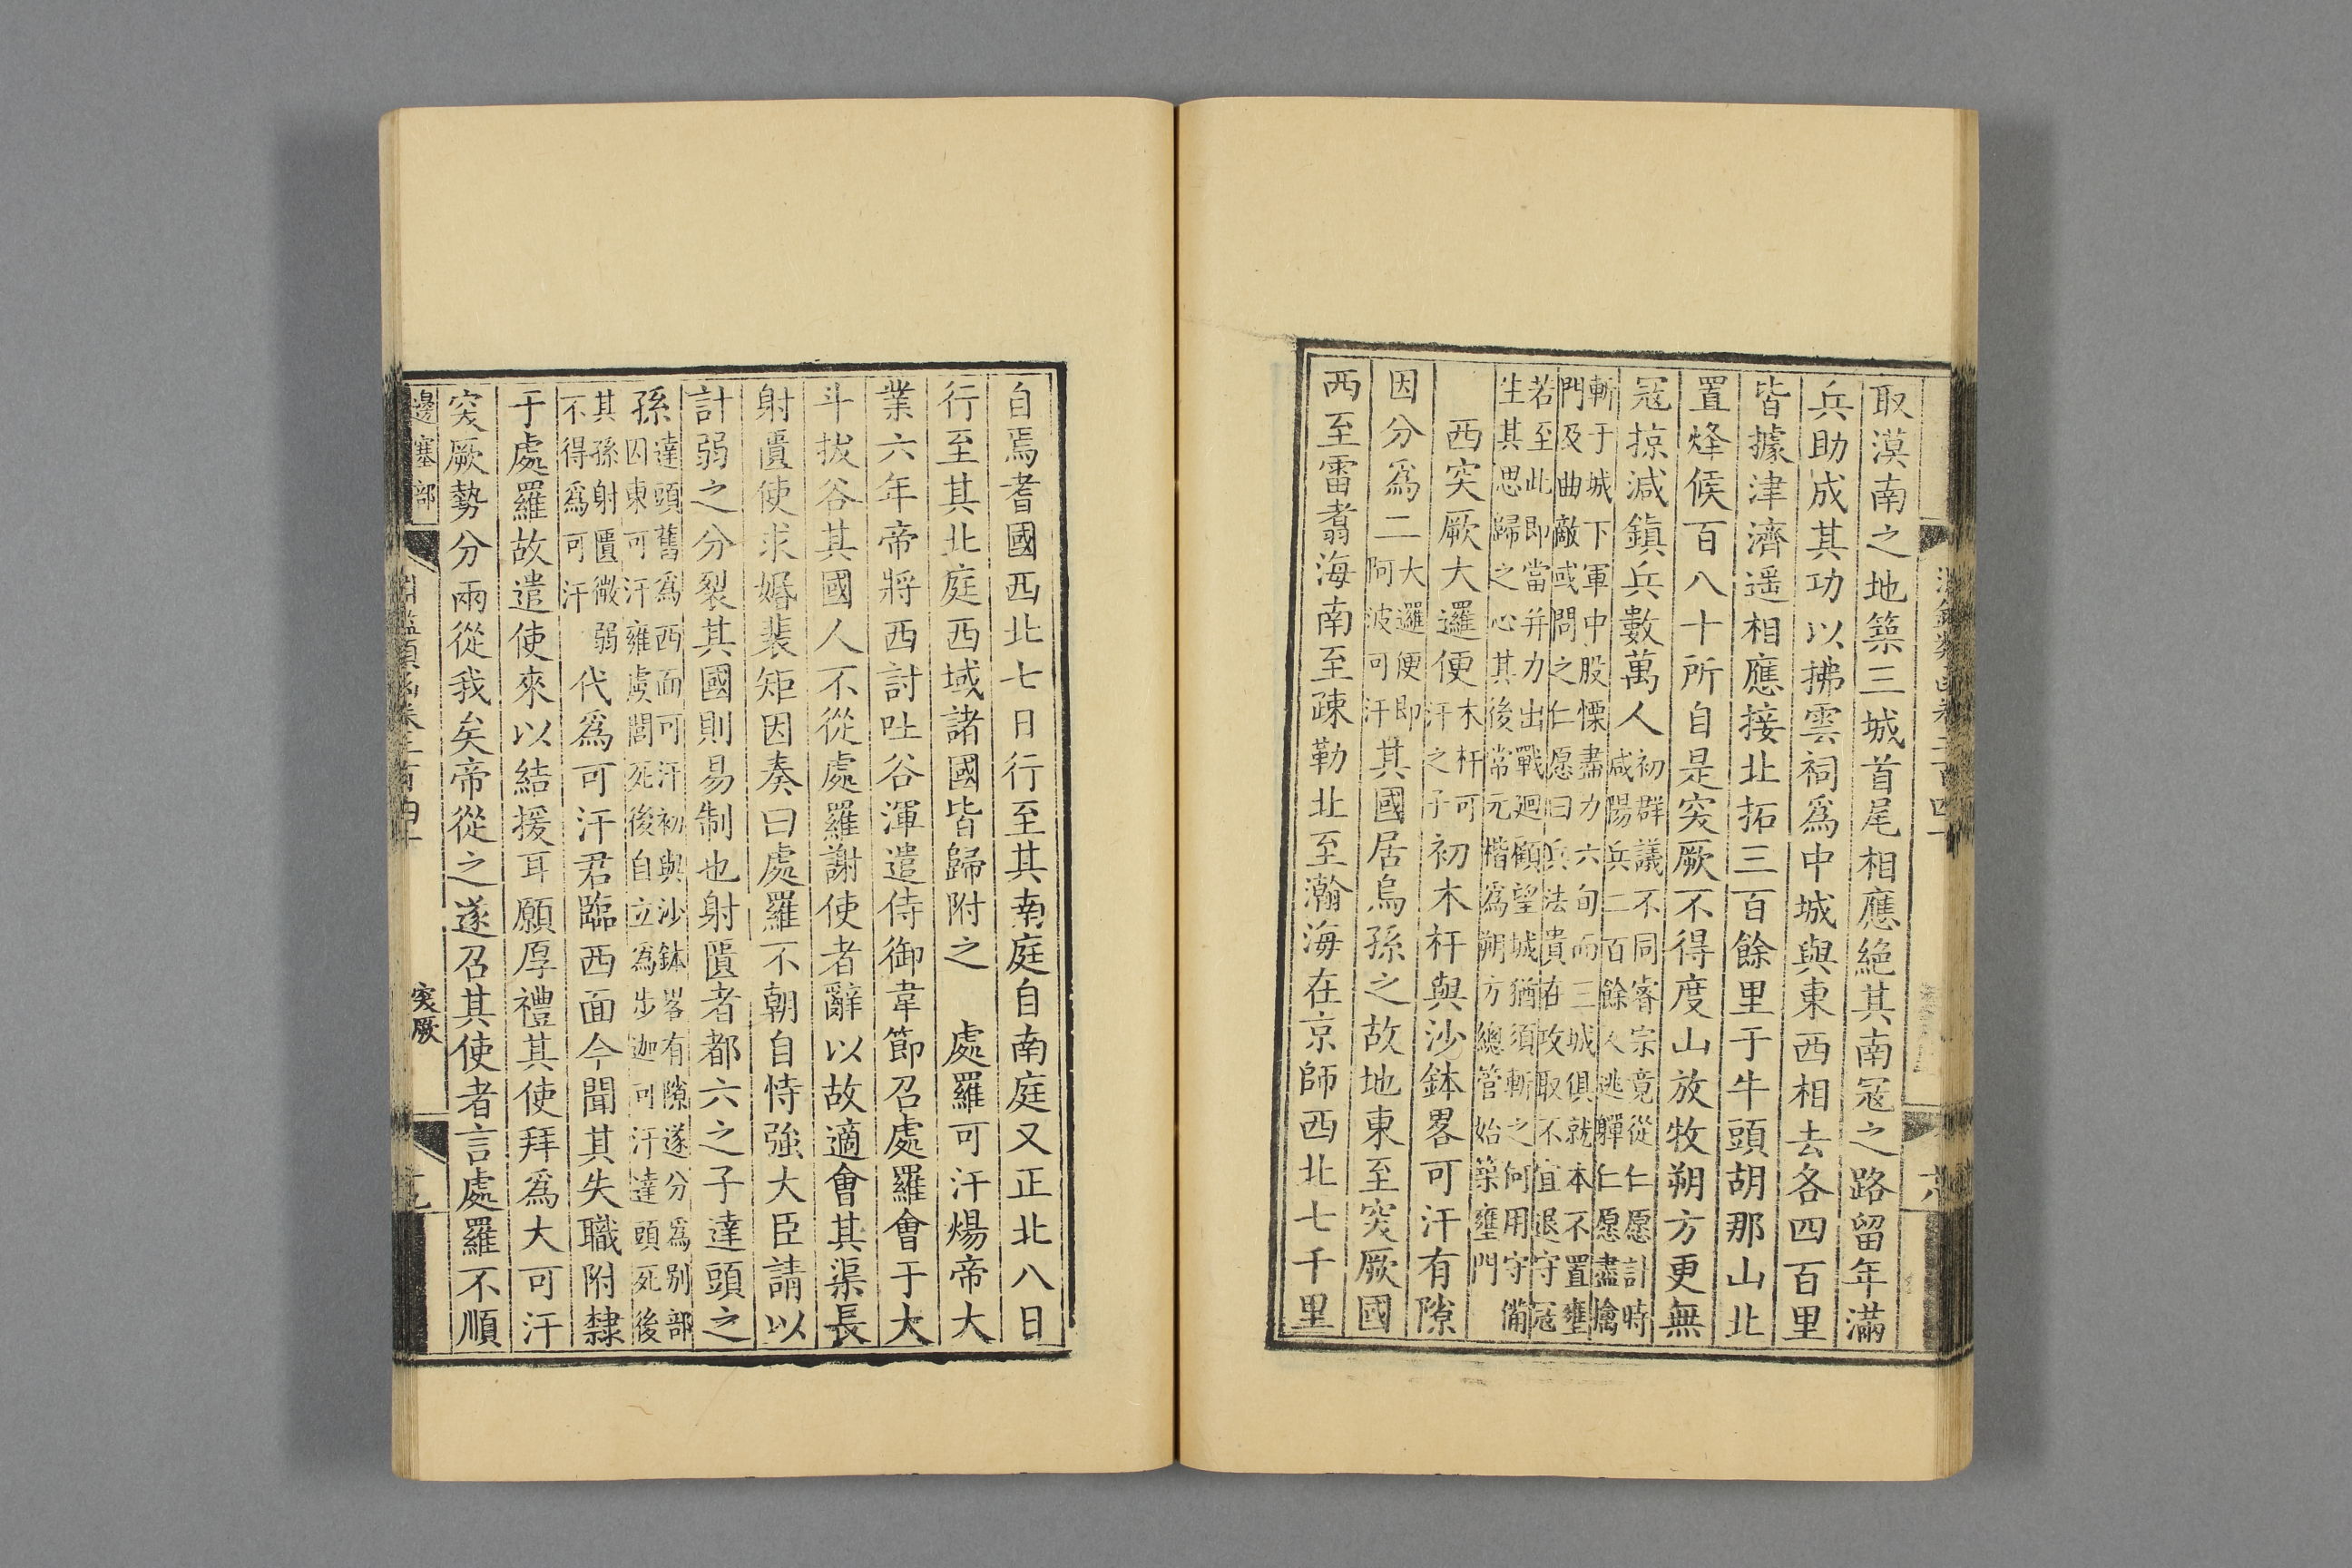 取漠南之地築三城首尾相應絶其南寇之路留年滿
兵助成其功以拂雲祠爲中城與東西相去各四百里
皆據津濟遥相應接北拓三百餘里于牛頭胡那山北
置烽候百八十所自是突厥不得度山放牧朔方更無
寇掠減鎮兵數萬人初群議不同睿宗竟從仁愿計時咸陽兵二百餘人逃驆仁愿盡擒
斬于城下軍中股慄盡力六旬而三城俱就本不置壅門及曲敵或問之仁愿曰兵法貴在攻取不宜退守寇
若至此即當并力出戰廻顧望城猶須斬之何用守備生其思歸之心其後常元楷爲朔方總管始築壅門
西突厥大邏便木杆可汗之子初木杆與沙鉢畧可汗有隙
因分爲二大邏便即阿波可汗其國居烏孫之故地東至突厥國
西至雷翥海南至疎勒北至瀚海在京師西北七千里
自焉耆國西北七日行至其南庭自南庭又正北八日
行至其北庭西域諸國皆歸附之 處羅可汗煬帝大
業六年帝將西討吐谷渾遣侍御韋節召處羅會于大
斗拔谷其國人不從處羅謝使者辭以故適會其渠長
射匱使求婚裴矩因奏曰處羅不朝自恃強大臣請以
計弱之分裂其國則易制也射匱者都六之子達頭之
孫達頭舊爲西面可汗初與沙鉢畧有隙遂分爲别部因東可汗雍虞閭死後自立為步迦可汗達頭死後
其孫射匱微弱不得爲可汗代爲可汗君臨西面今聞其失職附隸
于處羅故遣使來以結援耳願厚禮其使拜爲大可汗
突厥勢分兩從我矣帝從之遂召其使者言處羅不順
邊塞部
淵鑑類函卷二百四十
突厥